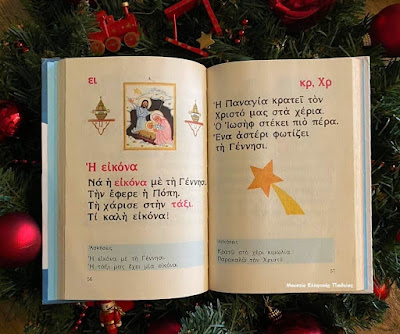 ει
Ἡ εἰκόνα
Νά ἡ εἰκόνα μὲ τὴ Γέννησι.
Τὴν ἔφερε ἡ Πόπη.
Τὴ χάρισε στὴν τάξι.
Τί καλὴ εἰκόνα!
Ἀσκήσεις
Ἡ εἰκόνα μὲ τὴ Γέννησι.
Ἡ τάξι μας ἔχει μία εἰκόνα.
56
κρ, Χρ
Ἡ Παναγία κρατεῖ τὸν
Χριστό μας στὰ χέρια.
Ὁ Ἰωσὴφ στέκει πιὸ πέρα.
Ἕνα ἀστέρι φωτίζει
τὴ Γέννησι.
Ἀσκήσεις
Κρατῶ στὸ χέρι κουλούρι.
Παρακαλῶ τὸν Χριστό.
57
Μουσείο Ελληνικής Παιδείας